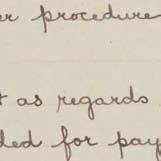 er procedure
t as regards
ded for pay